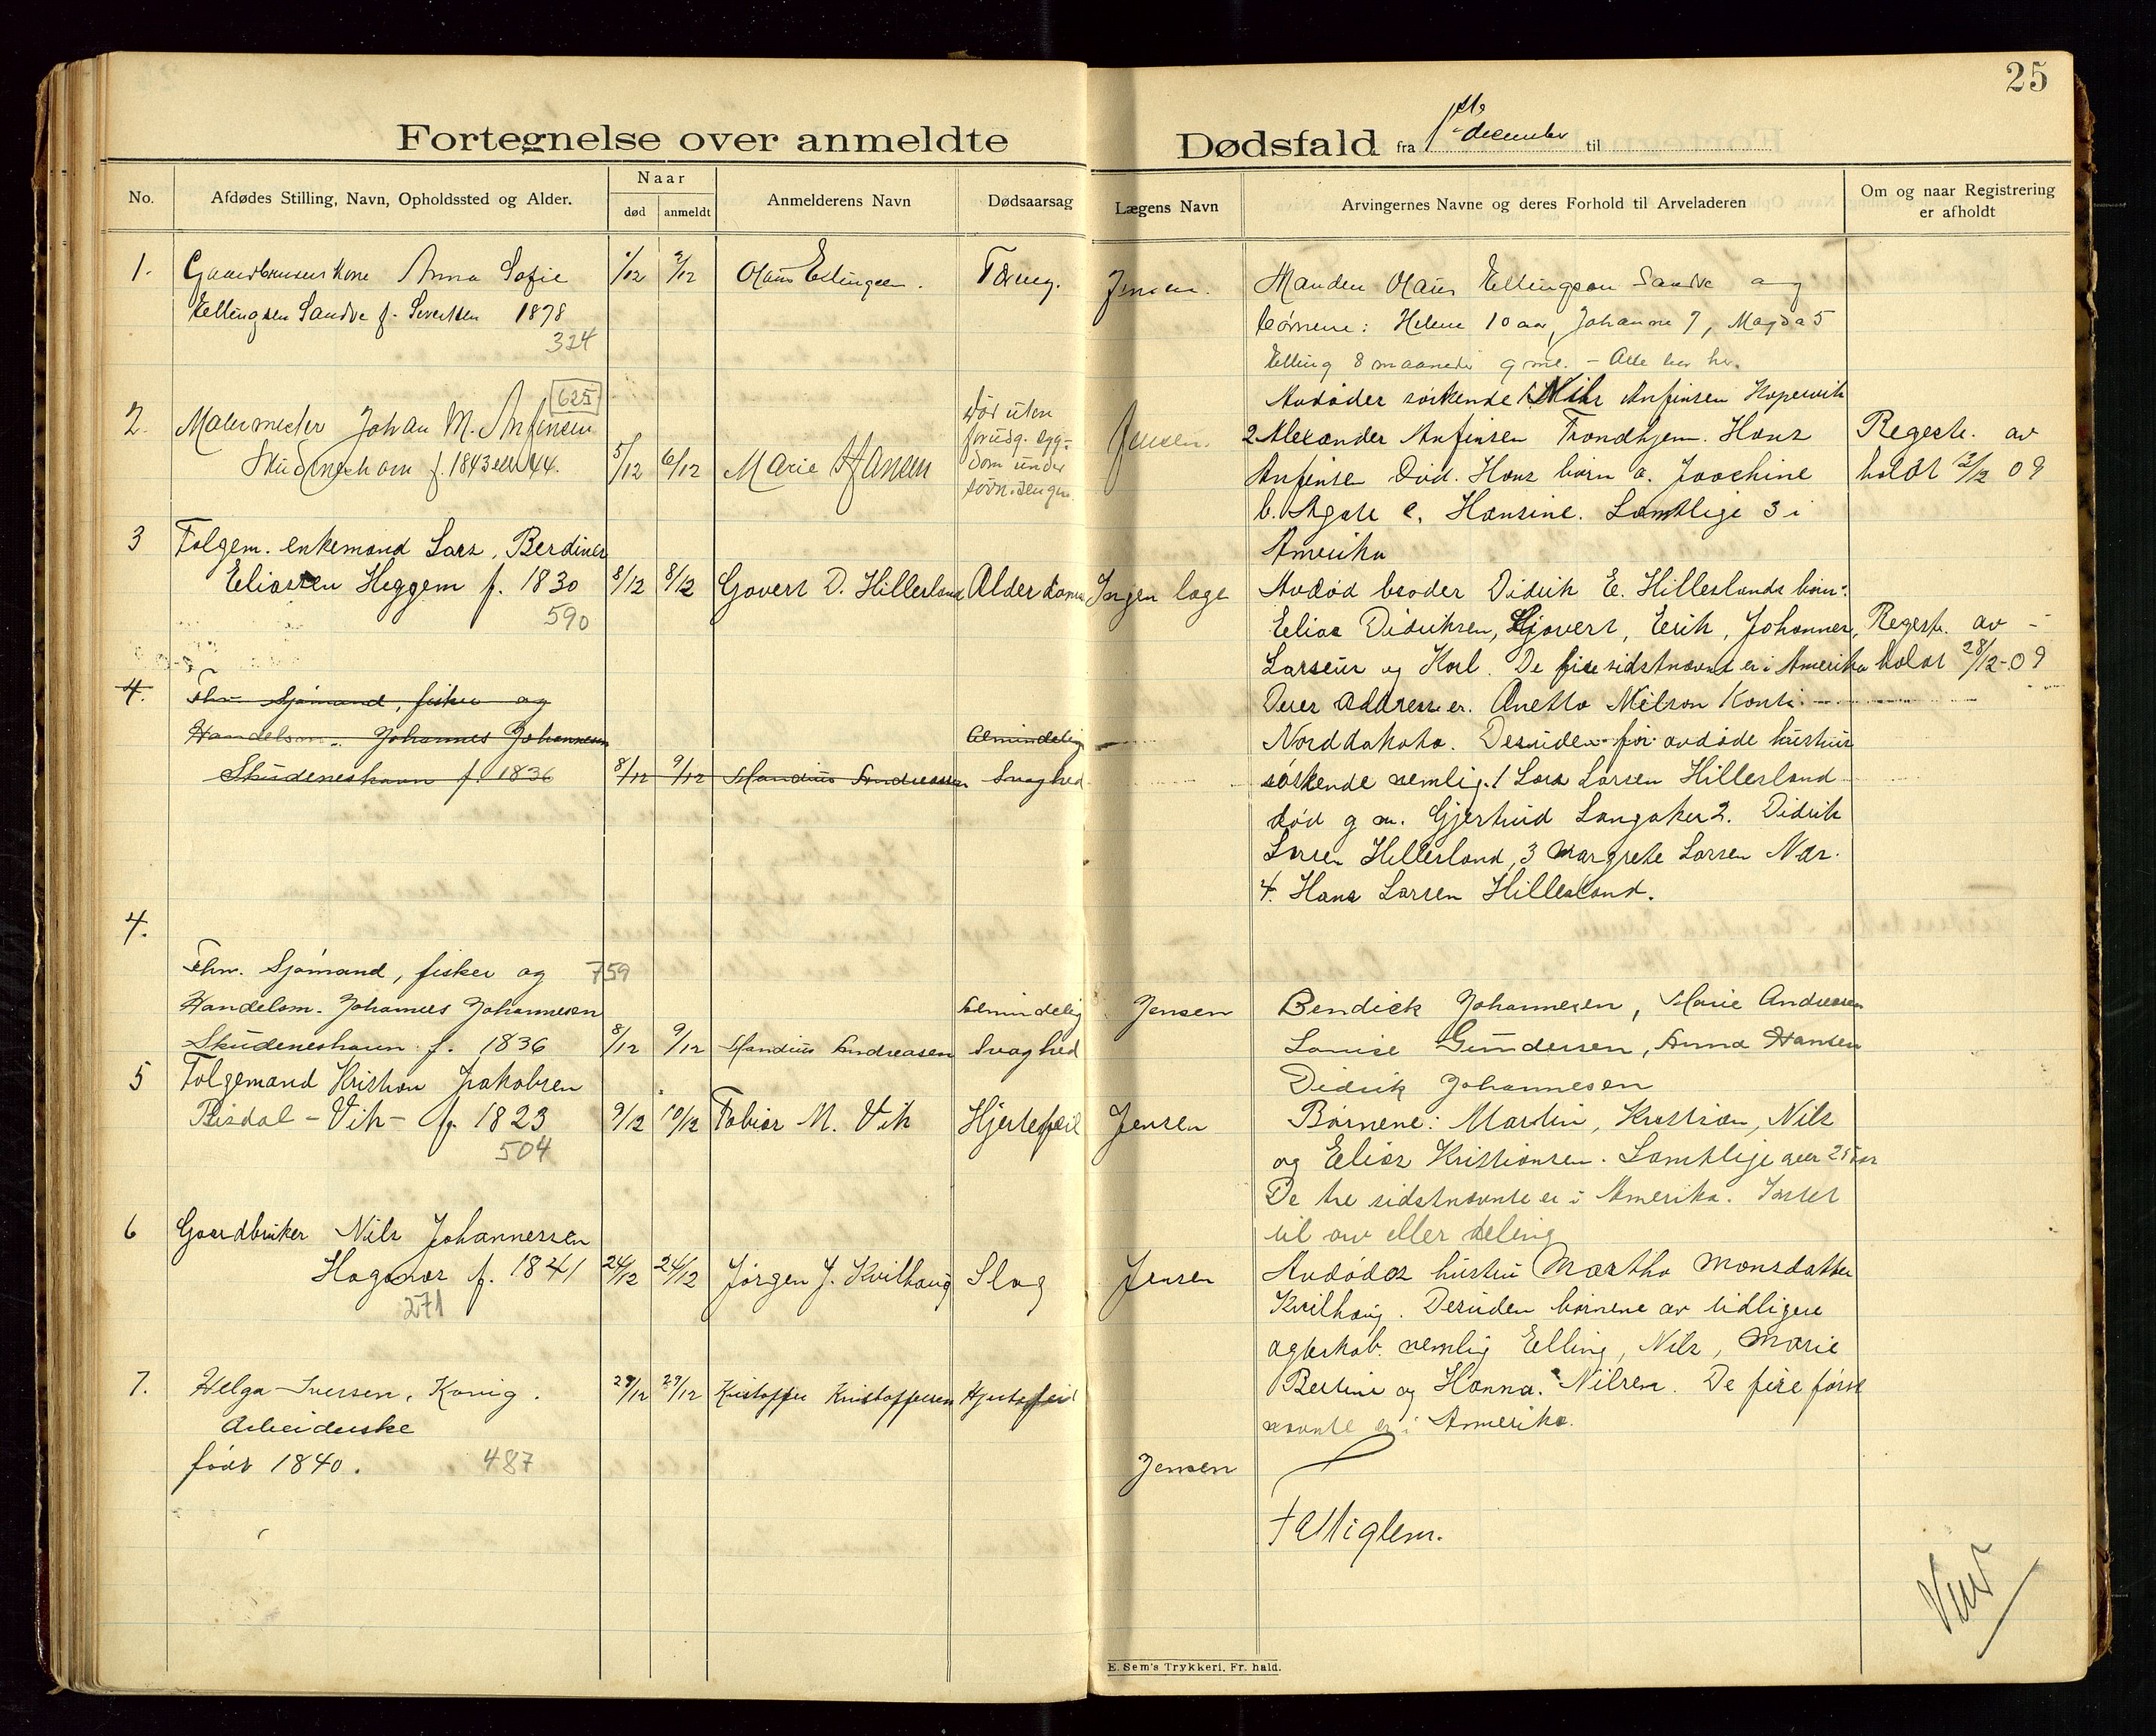 25
Fortegnelse over anmeldte Dødsfald fra 1ste december til
No.
Afdødes Stilling, Navn, Opholdssted og Alder.
Naar
død
anmeldt
Anmelderens Navn
Dødsaarsag
Lægens Navn
Arvingernes Navne og deres Forhold til Arveladeren
Om og naar Registrering
er afholdt
1.
Gaardbrukers kone Anna Sofie
Ellingsen Sandve f. Sivertsen 1878
324
1/12
2/12
Olaus Ellingsen.
Tæring.
Jensen.
Manden Olaus Ellingsen Sandve og
børnene: Helene 10 aar, Johanne 7, Magda 5
Elling 8 maaneder gml. - Alle her hr.
2.
625
Malermester Johan M. Anfinsen
Skudeneshavn f. 1843 eller 44.
5/12
6/12
Marie Hansen
Død uten
forudg. syg-
dom under
Jensen.
Avdødes søskende 1 Nils Anfinsen Kopervik
2 Alexander Anfinsen Trondhjem. Hans
Anfinsen Død. Hans børn a. Joachine
b. Agate c. Hansine. Samtlige 3 i
Amerika
Regestr. av
holdt 13/12 09
3
Følgem. enkemand Lars. Berdines
Eliassen Heggem f. 1830
590
8/12
8/12
Govert D. Hillesland
Alderdom
Ingen læge
Avdød broder Didrik E. Hilleslands børn:
Elias Didriksen, Gjovert, Erik, Johannes,
Larseus og Karl. De fire sidstnævnte er i Amerika
Deres addresse er. Anetta Nelson Konti.
Norddakota. Desuden for avdøde hustrus
søskende nemlig. 1 Lars Larsen Hillesland
død g m. Gjertrud Langaker 2. Didrik
Larsen Hillesland, 3 Margrete Larsen Nær.
4. Hans Larsen Hillesland.
Regestr. av -
holdt 28/12-09
4.
Fhv. Sjømand, fisker og
Handelsm. Johannes Johannesen
Skudeneshavn f. 1836
8/12
9/12
Mandius Andreassen
Almindelig
Svaghed
4.
Fhv. Sjømand, fisker og
759
Handelsm. Johannes Johannesen
Skudeneshavn f. 1836
8/12
9/12
Mandius Andreasen
Almindelig
Svaghed
Jensen
Bendick Johannesen, Marie Andreasen
Louise Gundersen, Anna Hansen
Didrik Johannesen
5
Følgemand Kristian Jakobsen
Risdal - Vik - f. 1823
504
9/12
10/12
Tobias M. Vik
Hjertefeil
Jensen
Børnene: Martin, Kristian, Nils
og Elias Kristiansen. Samtlige over 25 aar
De tre sidstnævnte er i Amerika. Intet
til arv eller deling
6
Gaardbruker Nils Johannessen
Haganes f. 1841
271
24/12
24/12
Jørgen J. Kvilhaug
Slag
Jensen
Avdødes hustru Martha Monsdatter
Kvilhaug. Desuden børnene av tidligere
ægteskab. nemlig Elling, Nils, Marie
Bertine og Hanna. Nilsen. De fire først
nævnte er i Amerika.
7.
Helga Iversen, Kønig.
Arbeiderske
født 1840.
487
29/12
29/12
Kristoffer Kristoffersen
Hjertefeil
Jensen
Fattiglem.
E. Sem's Trykkeri, Fr. hald.